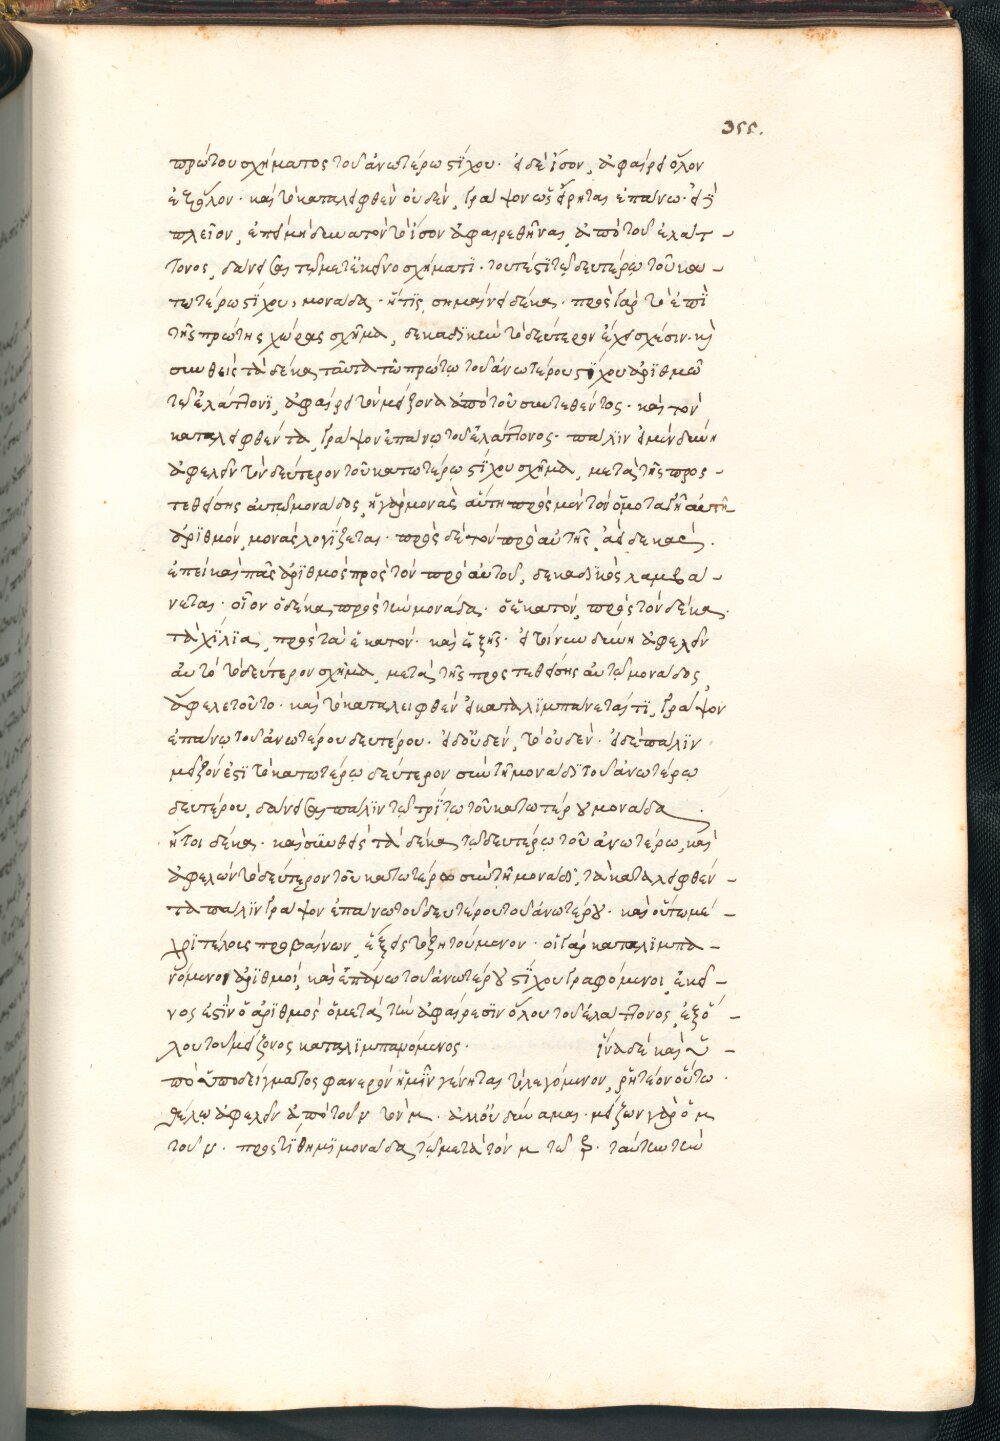 355.
πρώτου σχήματος τοῦ ἀνωτέρω στίχου· εἰ δὲ ἴσον, ἀφαίρει ὅλον
ἐξ ὅλον· καὶ τὸ καταλειφθὲν οὐδέν, γράψον ὡς εἴρηται ἐπάνω· εἰ δὲ
πλεῖον, ἐπεὶ μὴ δυνατὸν τὸ ἴσον ἀφαιρεθῆναι ἀπὸ τοῦ ἐλάτ –
τονος, δανείσαι τῷ μετ' ἐκεῖνο σχήματι· τουτέστι τῷ δευτέρῳ τοῦ κα –
τωτέρω στίχου, μονάδα· ἥτις σημαίνει δέκα· πρὸς γὰρ τὸ ἐπὶ
τῆς πρώτης χώρας σχῆμα, δεκαδικὴν τὸ δεύτερον ἔχει σχέσιν· καὶ
συνθεὶς τὰ δέκα ταῦτα τῷ πρώτῳ τοῦ ἀνωτέρου στίχου ἀριθμῷ
τῷ ἐλάττονι, ἀφαίρει τὸν μείζονα ἀπὸ τοῦ συντεθέντος· καὶ τὸν
καταλειφθέντα, γράψον ἐπάνω τοῦ ἐλάττονος· πάλιν εἰ μὲν δύνῃ
ἀφελεῖν τὸ δεύτερον τοῦ κατωτέρω στίχου σχῆμα, μετὰ τῆς προσ –
τεθείσης αὐτῷ μονάδος, ἡ γὰρ μονὰς αὕτη πρὸς μὲν τὸν ὁμοταγῆ αὐτῇ
ἀριθμόν, μονὰς λογίζεται· πρὸς δὲ τὸν πρὸ αὐτῆς, ἀεὶ δεκάς.
ἐπεὶ καὶ πᾶς ἀριθμὸς πρὸς τὸν πρὸ αὐτοῦ, δεκαδικὸς λαμβά –
νεται· οἷον ὁ δέκα, πρὸς τὴν μονάδα· ὁ ἑκατόν, πρὸς τὸν δέκα·
τὰ χίλια, πρὸς τὰ ἑκατόν· καὶ ἑξῆς· εἰ τοίνυν δύνῃ ἀφελεῖν
αὐτὸ τὸ δεύτερον σχῆμα, μετὰ τῆς προστεθείσης αὐτῷ μονάδος,
ἄφελε τοῦτο· καὶ τὸ καταλειφθὲν εἰ καταλιμπάνεταί τι, γράψον
ἐπάνω τοῦ ἀνωτέρου δευτέρου· εἰ δ' οὐδέν, τὸ οὐδέν· εἰ δὲ πάλιν
μεῖζόν ἐστι τὸ κατωτέρω δεύτερον σὺν τῇ μονάδι τοῦ ἀνωτέρω
δευτέρου, δανείσαι πάλιν τῷ τρίτῳ τοῦ κατωτέρου μονάδα
ἤτοι δέκα· καὶ συνθεὶς τὰ δέκα τῷ δευτέρῳ τοῦ ἀνωτέρω, καὶ
ἀφελὼν τὸ δεύτερον τοῦ κατωτέρω σὺν τῇ μονάδι, τὰ καταλειφθέν –
τα πάλιν γράψον ἐπάνω τοῦ δευτέρου τοῦ ἀνωτέρου· καὶ οὕτω μέ –
χρι τέλους προβαίνων, ἕξεις τὸ ζητούμενον· οἱ γὰρ καταλιμπα –
νόμενοι ἀριθμοί, καὶ ἐπάνω τοῦ ἀνωτέρου στίχου γραφόμενοι, ἐκεῖ –
νός ἐστιν ὁ ἀριθμὸς ὁ μετὰ τὴν ἀφαίρεσιν ὅλου τοῦ ἐλάττονος, ἐξ ὅ –
λου τοῦ μείζονος καταλιμπανόμενος· ἵνα δὲ καὶ ὑ –
πὸ ὑποδείγματος φανερὸν ἡμῖν γένηται τὸ λεγόμενον, ῥητέον οὕτω·
θέλω ἀφελεῖν ἀπὸ τοῦ ν τὸν μ· ἀλλ' οὐ δύναμαι· μείζων γὰρ ὁ μ
τοῦ ν· προστίθημι μονάδα τῷ μετὰ τὸν μ τῷ ξ· ταύτην τὴν